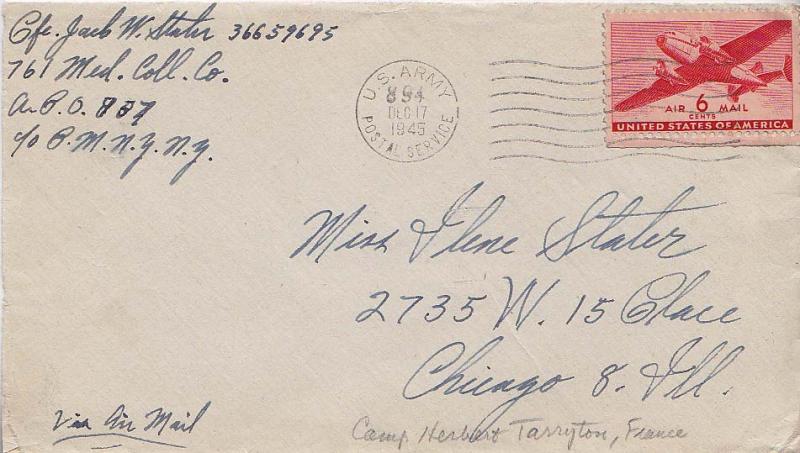 Pfc. Jack W. Stater 36659695
761 Med. Coll. Co.
A.P.O. 887
c/o P.M. N.Y. N.Y.
U.S. ARMY
DEC 17
1945
POSTAL SERVICE
AIR 6 MAIL
CENTS
UNITED STATES OF AMERICA
Miss Ilene Stater
2735 W. 15 Place
Chicago 8. Ill.
Via Air Mail
Camp Herbert Tarryton, France